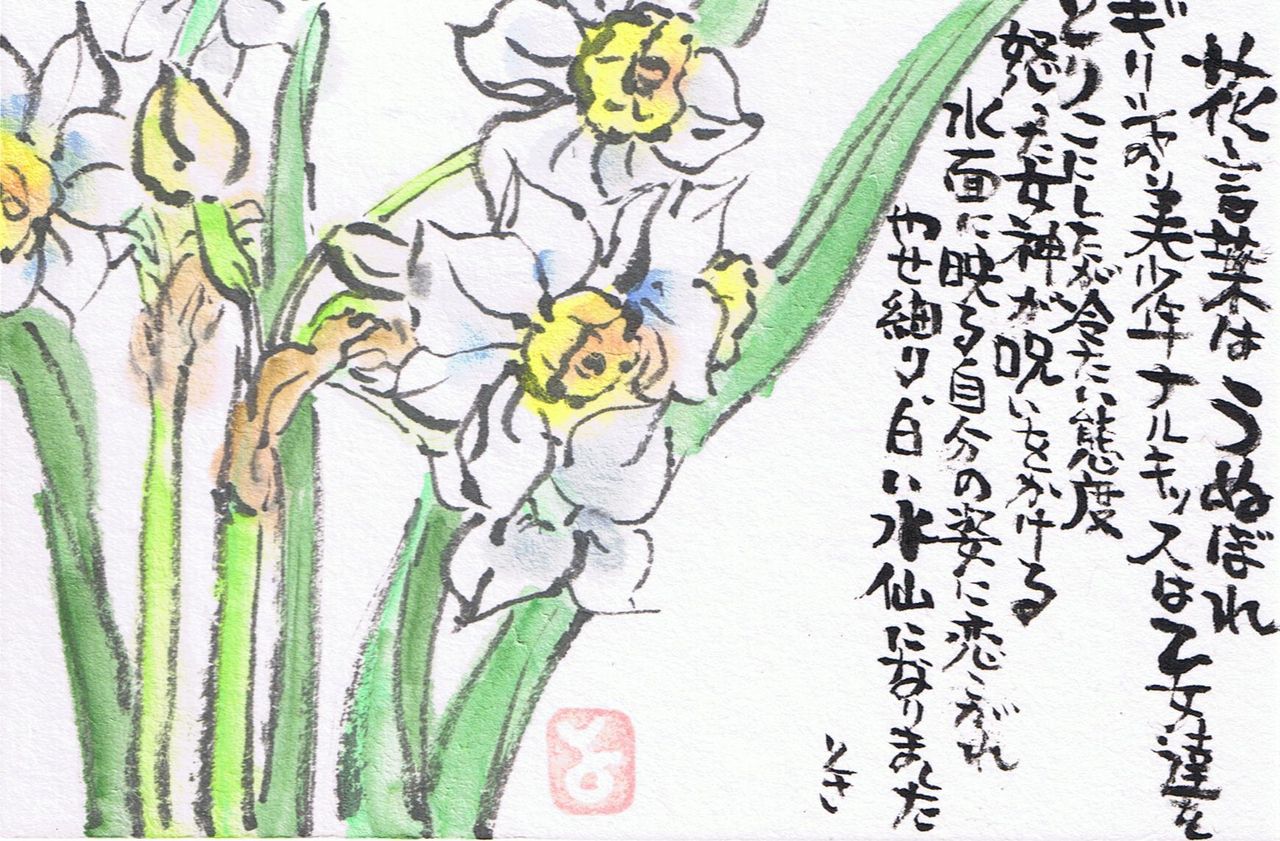 花言葉はうぬぼれ
ギリシャの美少年ナルキッスは乙女達を
とりこにしたが冷たい態度
怒った女神が呪いをかける
水面に映る自分の姿に恋こがれ
やせ細り、白い水仙になりました
とさ
と